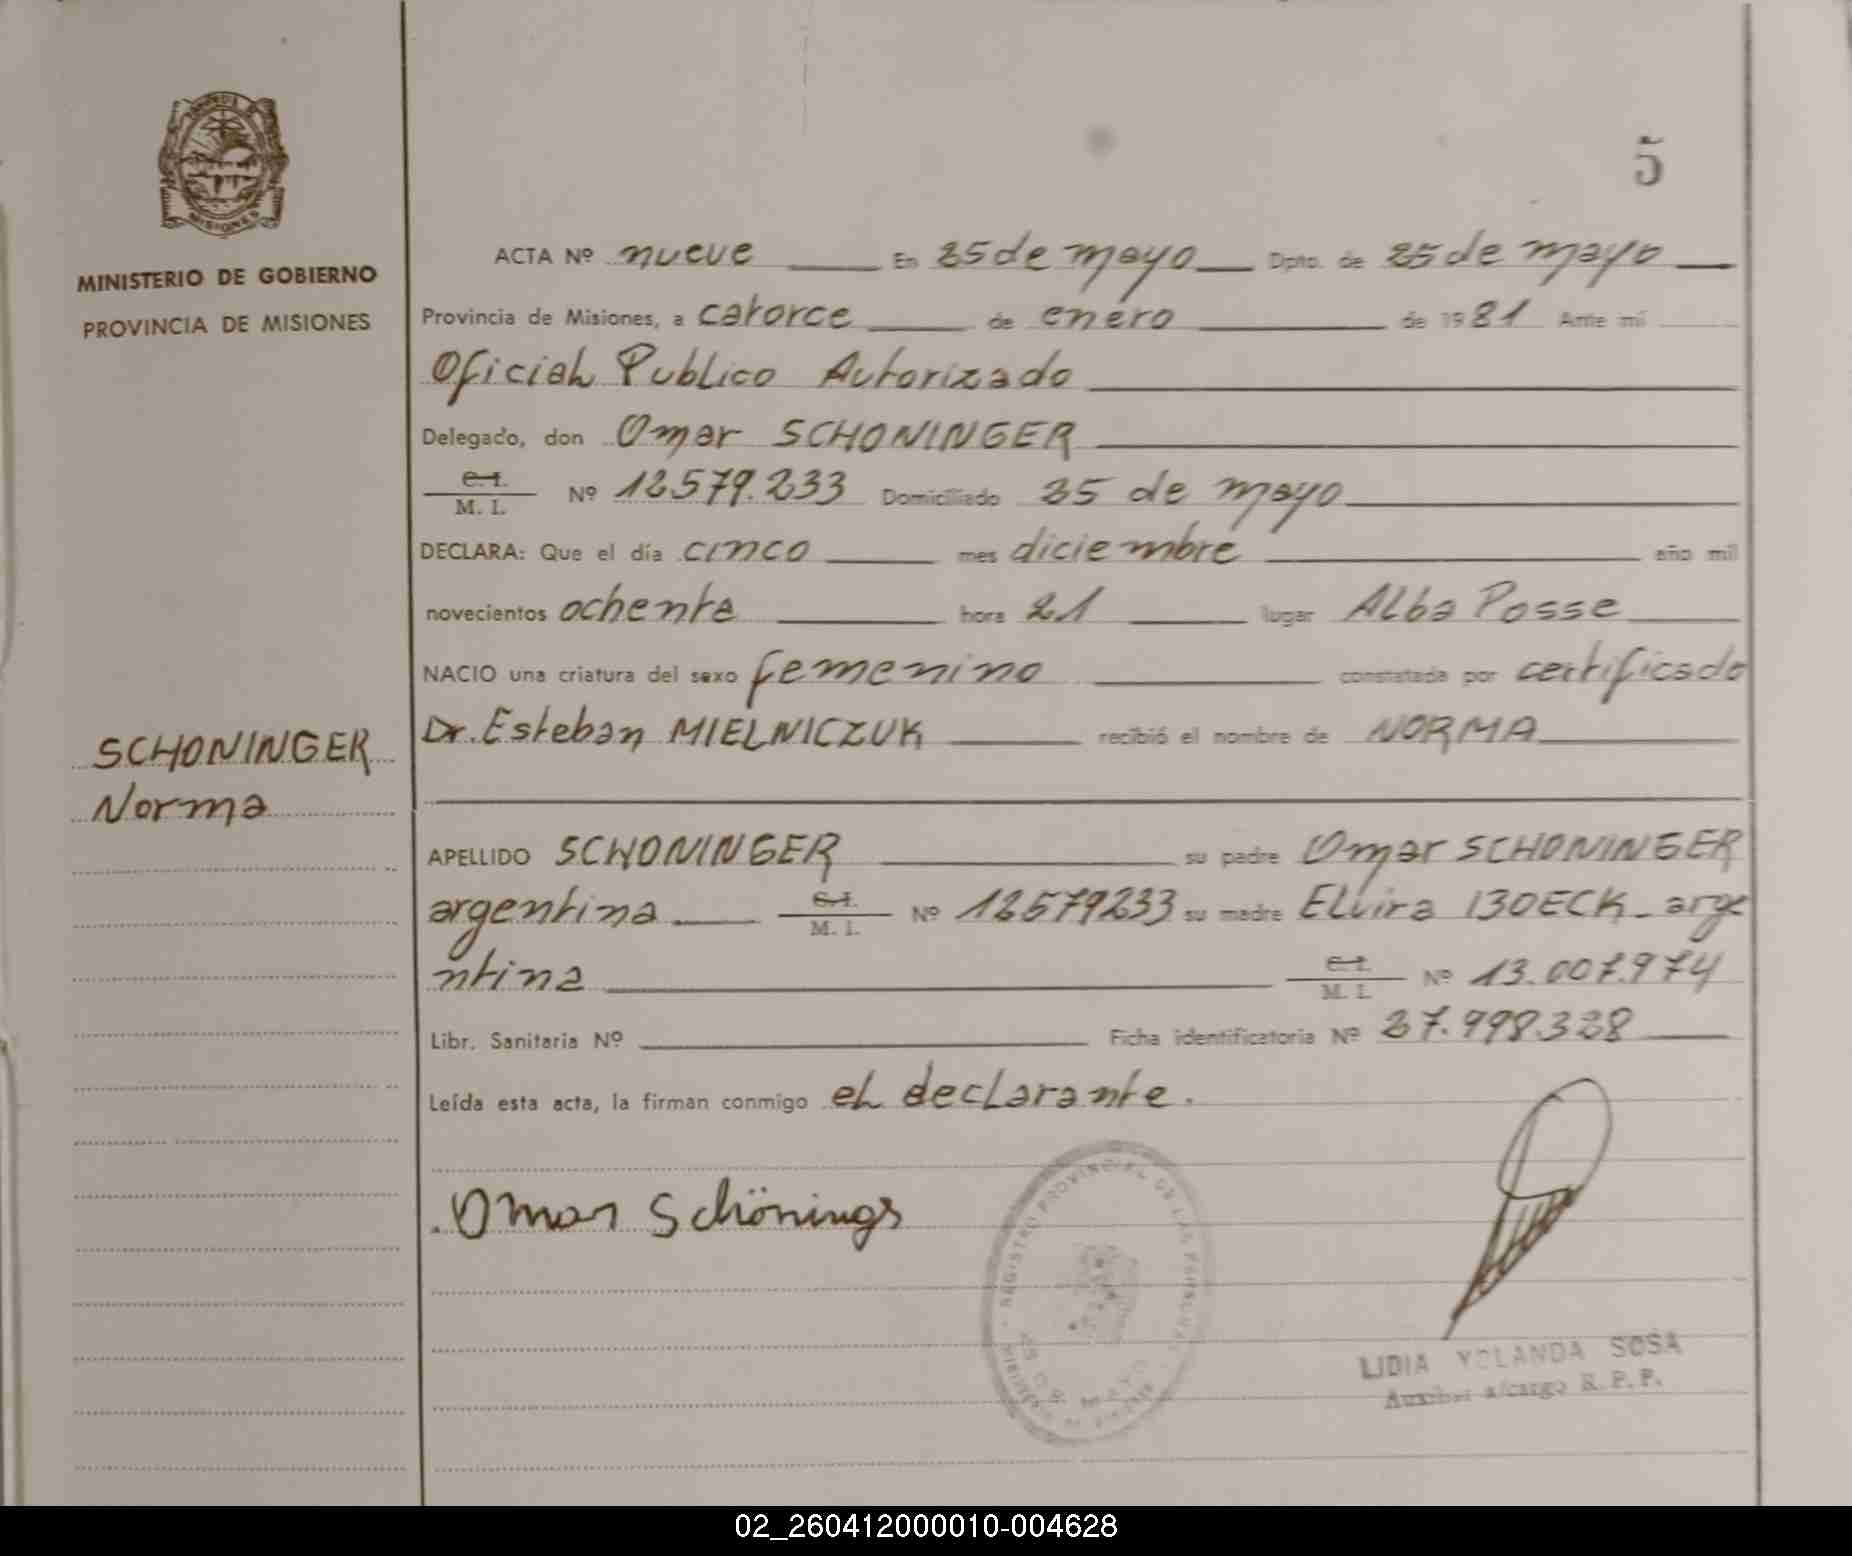 5
MINISTERIO DE GOBIERNO
PROVINCIA DE MISIONES
ACTA Nº nueve En 25 de mayo Dpto. de 25 de mayo
Provincia de Misiones, a catorce de enero de 1981 Ante mí
Oficial Publico Autorizado
Delegado, don Omar SCHONINGER
C.I.
M. I. Nº 12.579.233 Domiciliado 25 de mayo
DECLARA: Que el día cinco mes diciembre año mil
novecientos ochenta hora 21 lugar Alba Posse
NACIO una criatura del sexo femenino constatada por certificado
Dr. Esteban MIELNICZUK recibió el nombre de NORMA
SCHONINGER
Norma
APELLIDO SCHONINGER su padre Omar SCHONINGER
argentina C.I. M. I. Nº 12579233 su madre Elvira BOECK - arge
ntina C.I. M. I. Nº 13.007.974
Libr. Sanitaria Nº Ficha identificatoria Nº 27.998.328
Leída esta acta, la firman conmigo el declarante.
Omar Schöninger
REGISTRO PROVINCIAL DE LAS PERSONAS
25 DE MAYO
LIDIA YOLANDA SOSA
Auxiliar a/cargo R. P. P.
02_260412000010-004628